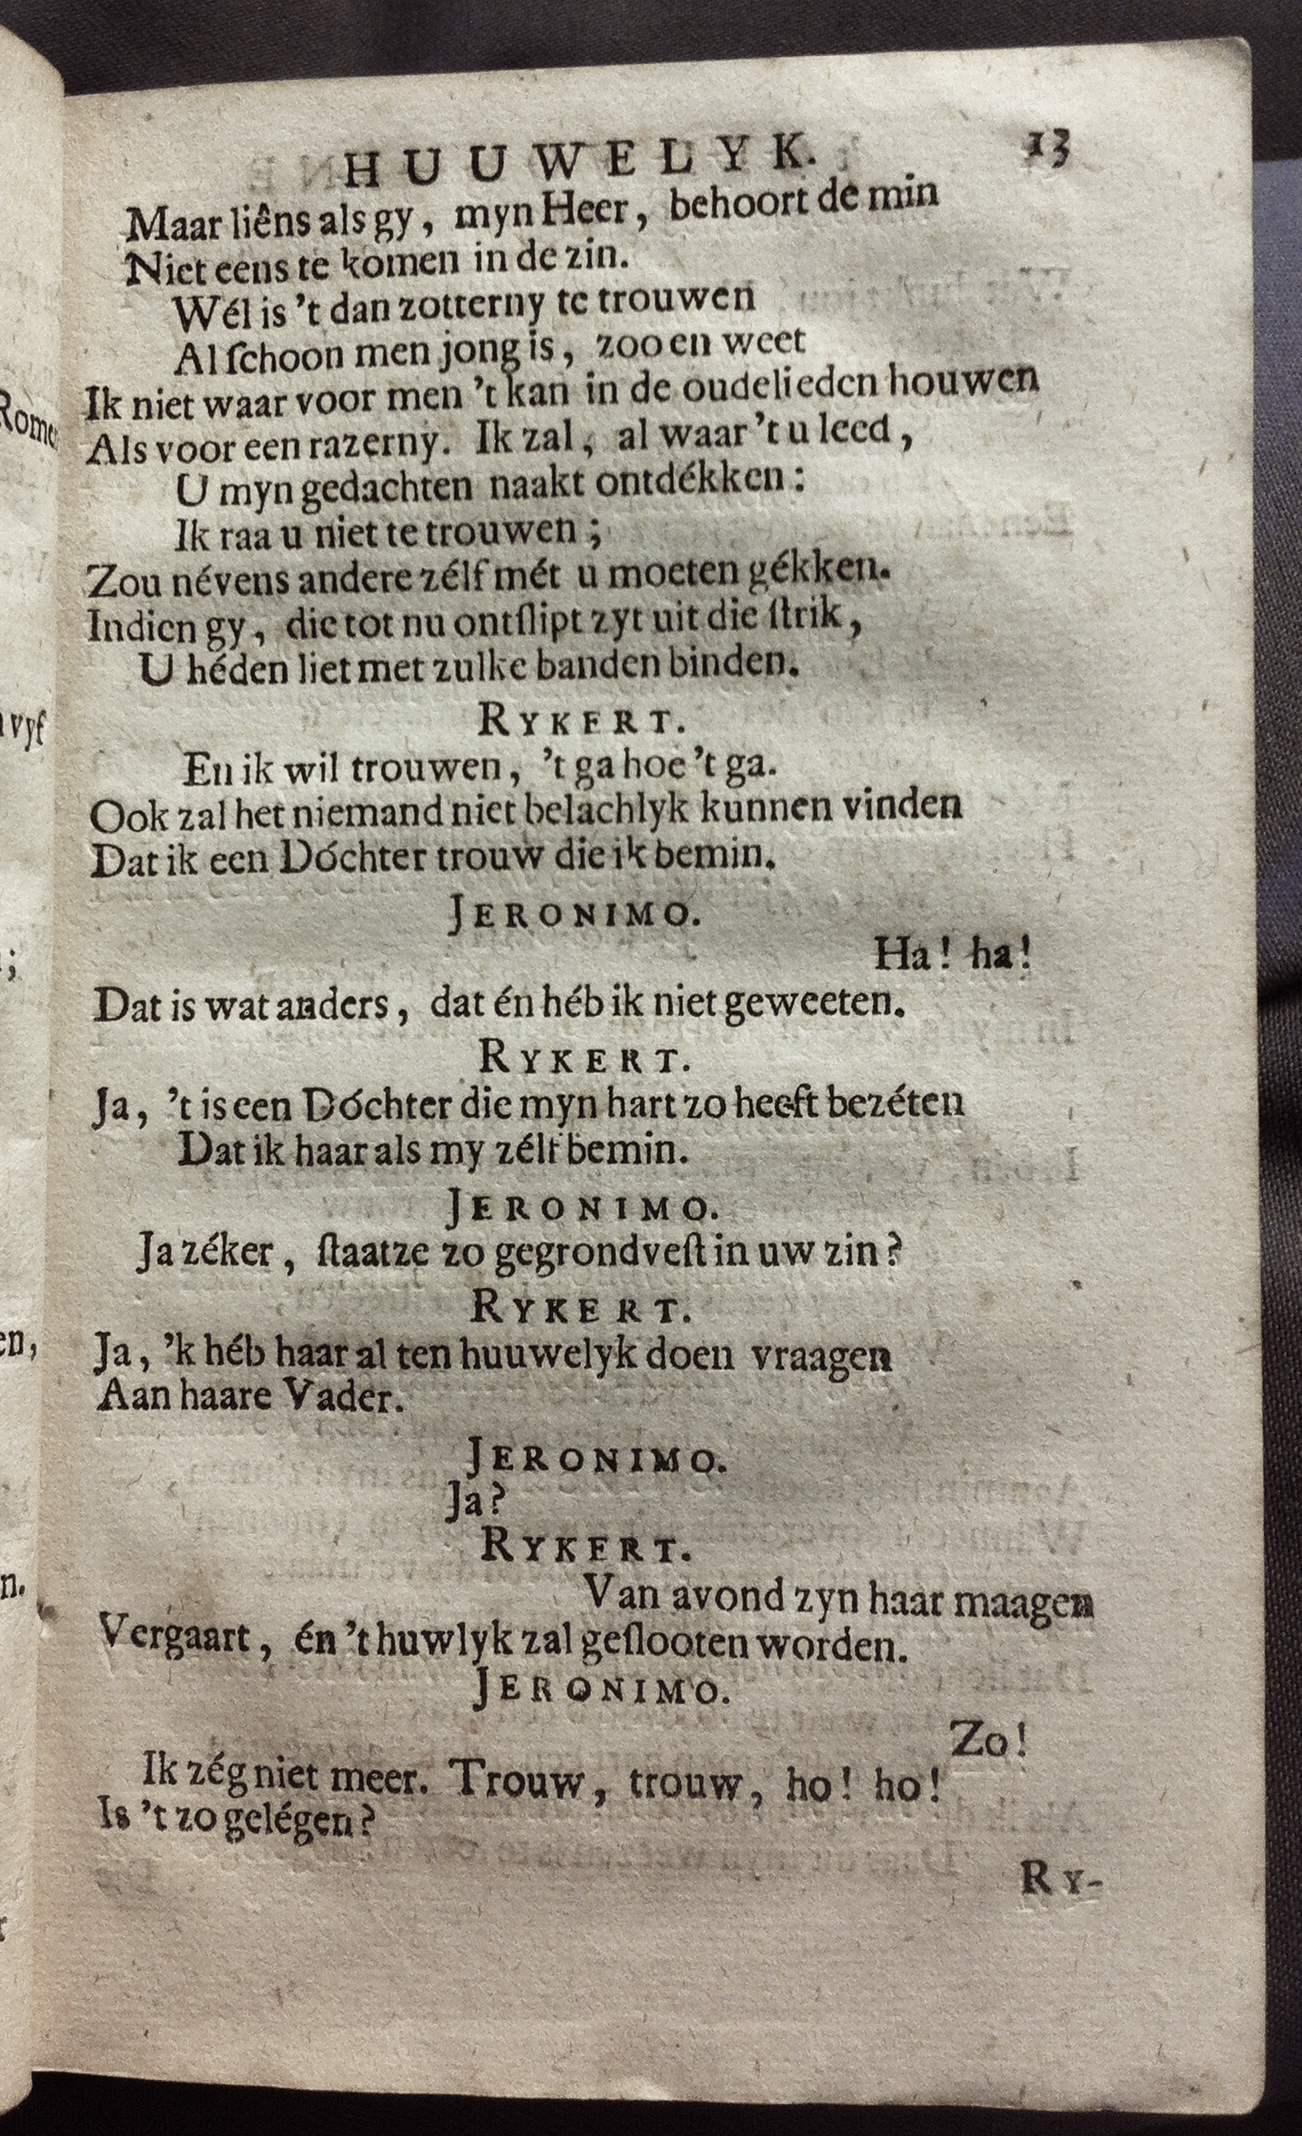 HUUWELYK. 13
Maar liêns als gy, myn Heer, behoort de min
Niet eens te komen in de zin.
Wél is 't dan zotterny te trouwen
Al ſchoon men jong is, zoo en weet
Ik niet waar voor men 't kan in de oudelieden houwen
Als voor een razerny. Ik zal, al waar 't u leed,
U myn gedachten naakt ontdékken:
Ik raa u niet te trouwen;
Zou névens andere zélf mét u moeten gékken.
Indien gy, die tot nu ontſlipt zyt uit die ſtrik,
U héden liet met zulke banden binden.
RYKERT.
En ik wil trouwen, 't ga hoe 't ga.
Ook zal het niemand niet belachlyk kunnen vinden
Dat ik een Dóchter trouw die ik bemin.
JERONIMO.
Ha! ha!
Dat is wat anders, dat én héb ik niet geweeten.
RYKERT.
Ja, 't is een Dóchter die myn hart zo heeft bezéten
Dat ik haar als my zélf bemin.
JERONIMO.
Ja zéker, ſtaatze zo gegrondveſt in uw zin?
RYKERT.
Ja, 'k héb haar al ten huuwelyk doen vraagen
Aan haare Vader.
JERONIMO.
Ja?
RYKERT.
Van avond zyn haar maagen
Vergaart, én 't huwlyk zal geſlooten worden.
JERONIMO.
Zo!
Ik zég niet meer. Trouw, trouw, ho! ho!
Is 't zo gelégen?
RY-